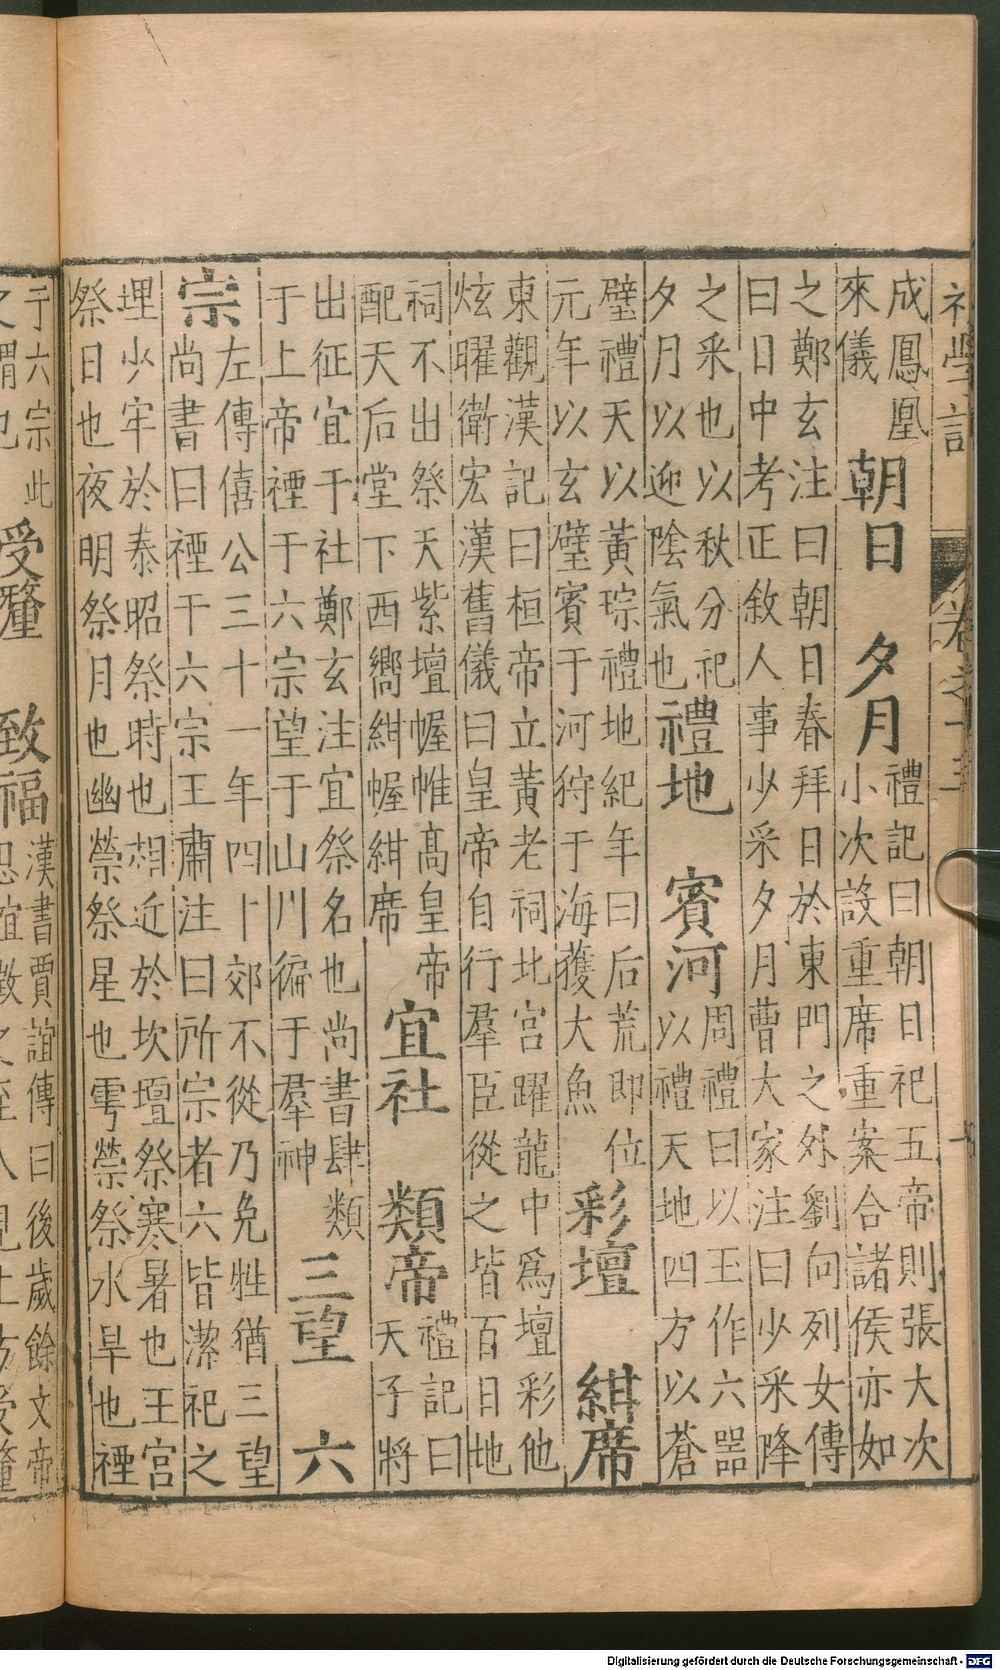 成鳳凰
來儀
朝日　夕月
禮記曰朝日祀五帝則張大次
小次設重席重案合諸侯亦如
之鄭玄注曰朝日春拜日於東門之外劉向列女傳
曰日中考正敘人事少采夕月曹大家注曰少采降
之采也以秋分祀
夕月以迎陰氣也
禮地　賓河
周禮曰以玉作六器
以禮天地四方以蒼
璧禮天以黃琮禮地紀年曰后荒即位
元年以玄璧賓于河狩于海獲大魚
彩壇　紺席
東觀漢記曰桓帝立黃老祠北宮躍龍中爲壇彩他
炫曜衛宏漢舊儀曰皇帝自行羣臣從之皆百日地
祠不出祭天紫壇幄帷高皇帝
配天后堂下西嚮紺幄紺席
宜社　類帝
禮記曰
天子將
出征宜于社鄭玄注宜祭名也尚書肆類
于上帝禋于六宗望于山川徧于羣神
三望　六
宗
左傳僖公三十一年四卜郊不從乃免牲猶三望
尚書曰禋于六宗王肅注曰所宗者六皆潔祀之
埋少牢於泰昭祭時也相近於坎壇祭寒暑也王宮
祭日也夜明祭月也幽禜祭星也雩禜祭水旱也禋
于六宗此
之謂也
受釐　致福
漢書賈誼傳曰後歲餘文帝
思誼徵之至入見上方受釐
Digitalisierung gefördert durch die Deutsche Forschungsgemeinschaft - DFG